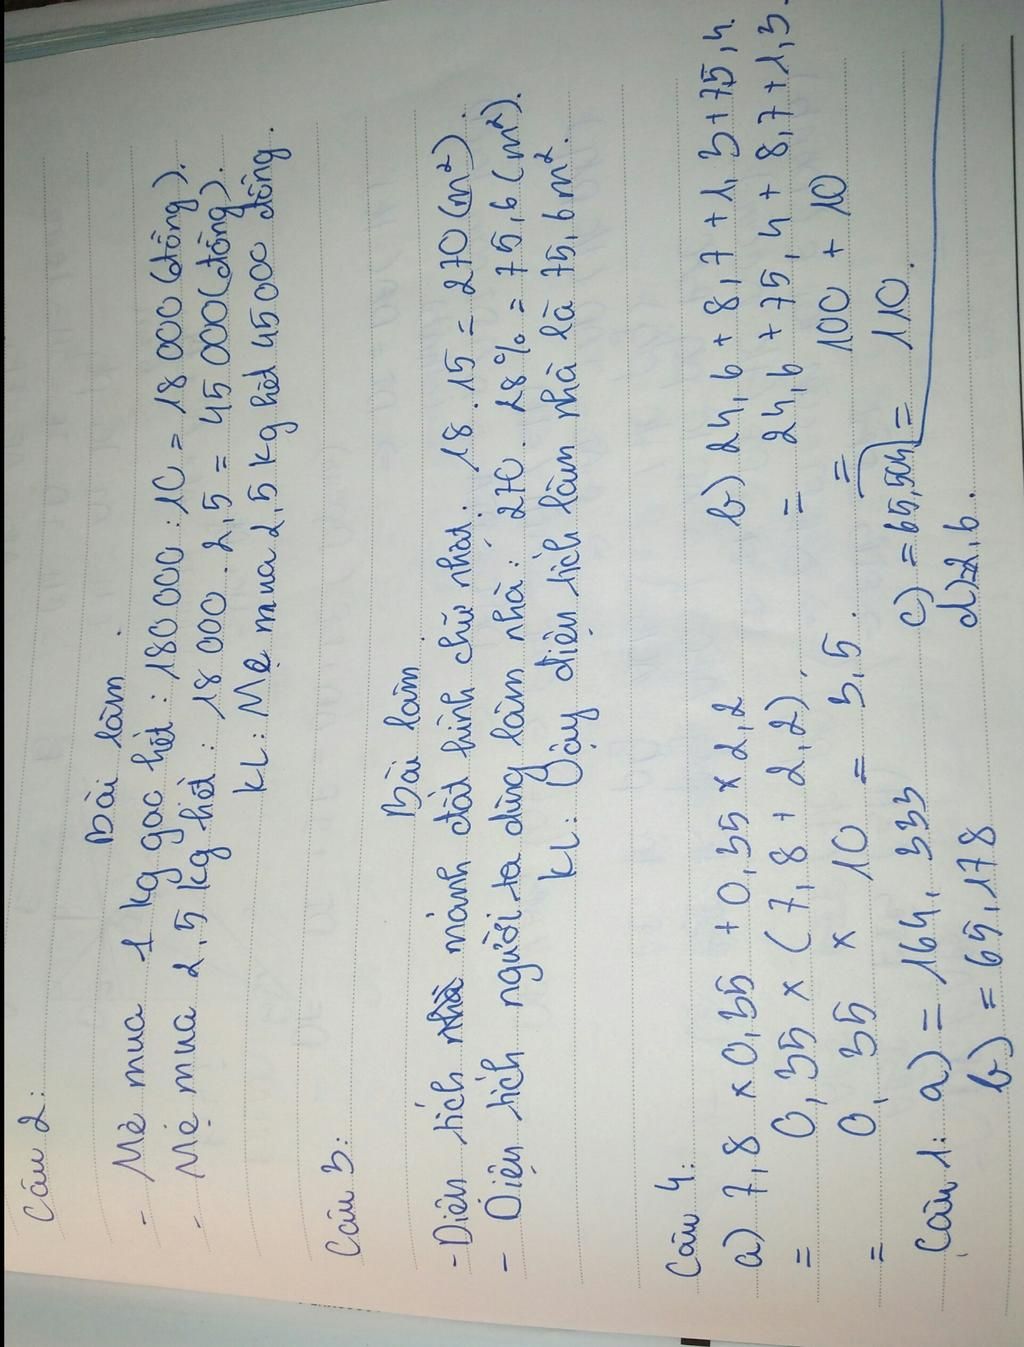 Câu 2:
Bài làm.
- Mẹ mua 1 kg gạo hết: 180 000 : 10 = 18 000 (đồng).
- Mẹ mua 2,5 kg hết: 18 000 . 2,5 = 45 000 (đồng).
KL: Mẹ mua 2,5 kg hết 45 000 đồng.
Câu 3:
Bài làm
- Diện tích mảnh đất hình chữ nhật: 18 . 15 = 270 (m²).
- Diện tích người ta dùng làm nhà: 270 . 28% = 75,6 (m²).
KL: Vậy diện tích làm nhà là 75,6 m².
Câu 4:
a) 7,8 x 0,35 + 0,35 x 2,2
= 0,35 x (7,8 + 2,2).
= 0,35 x 10 = 3,5.
b) 24,6 + 8,7 + 1,3 + 75,4.
= 24,6 + 75,4 + 8,7 + 1,3.
= 100 + 10
= 110.
Câu 1: a) = 164,333
b) = 65,178
c) = 65,504
d) 2,6.